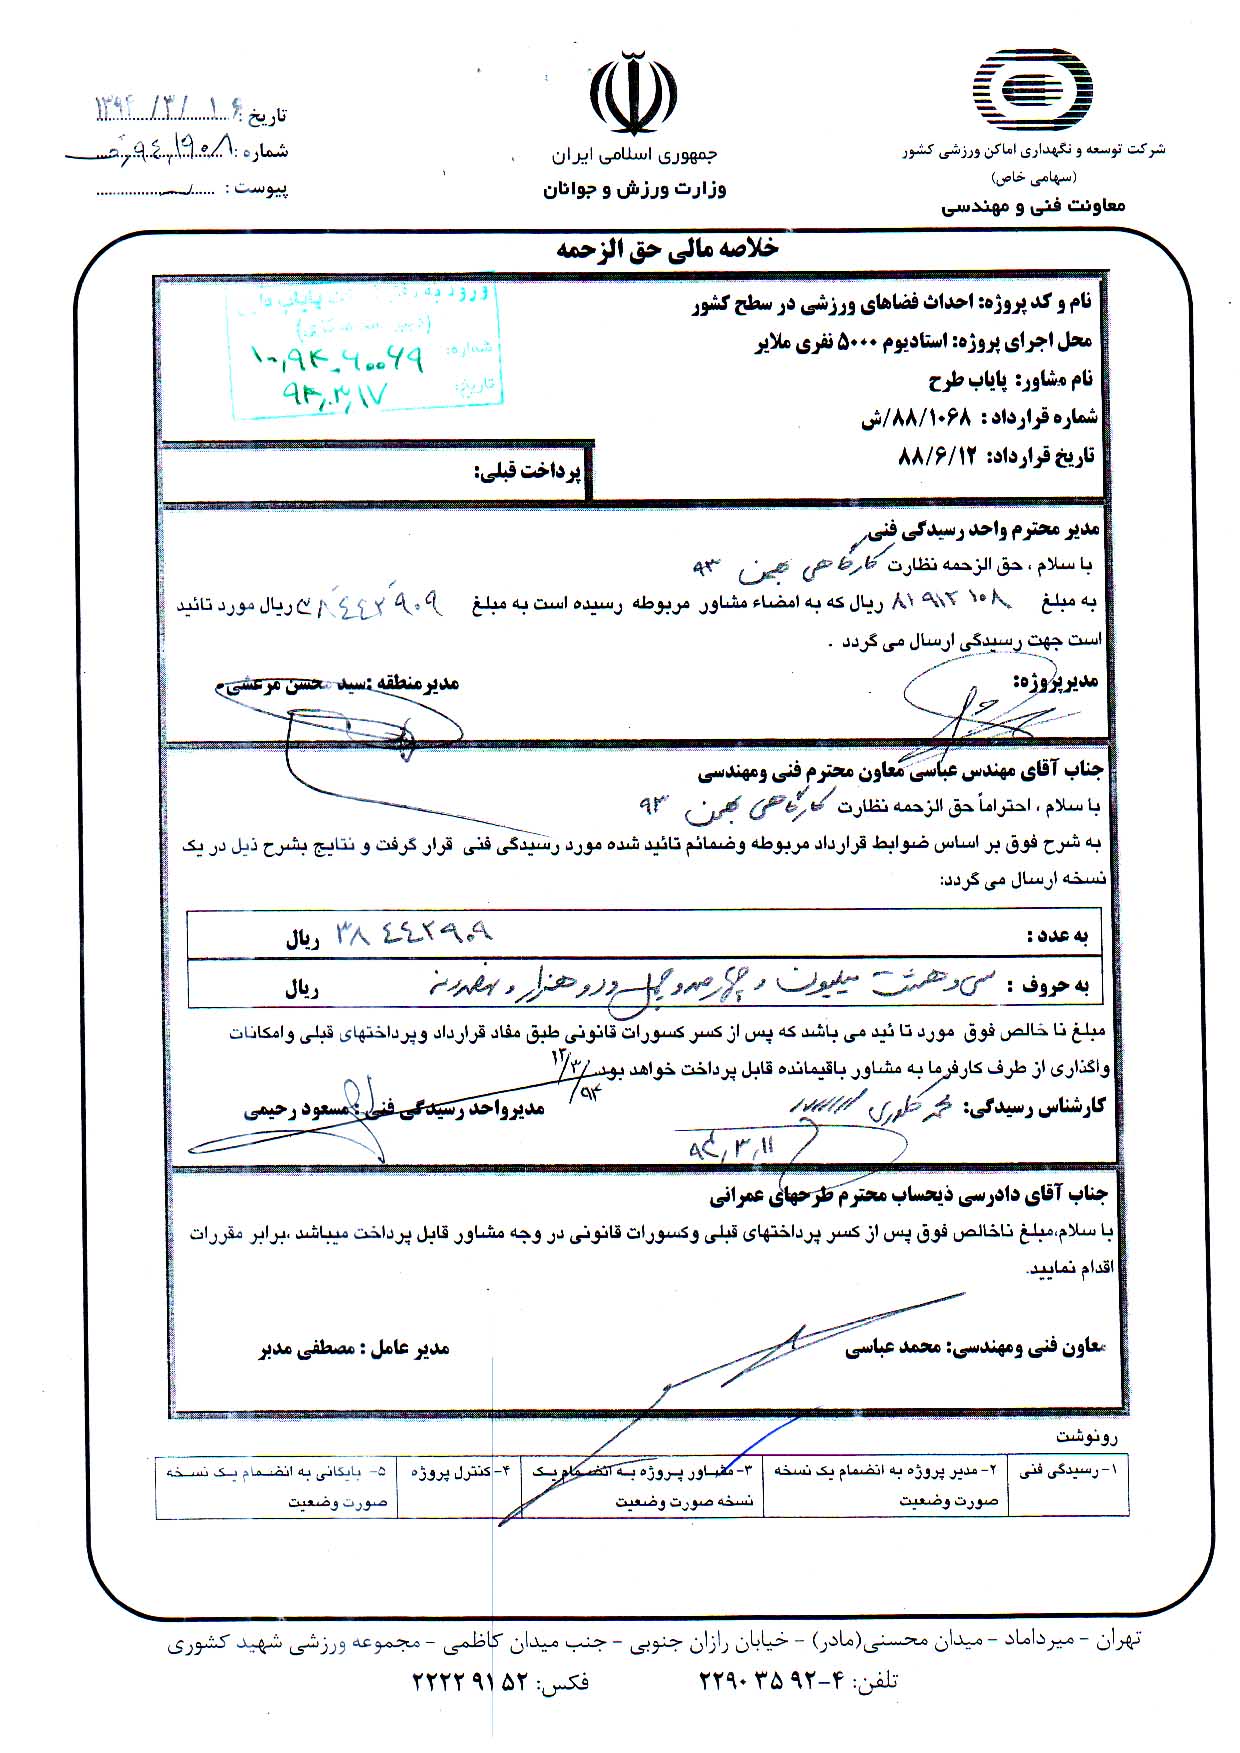 شرکت توسعه و نگهداری اماکن ورزشی کشور
(سهامی خاص)
معاونت فنی و مهندسی
جمهوری اسلامی ایران
وزارت ورزش و جوانان
تاریخ: ۱۳۹۴/۳/۱۶
شماره: ۹۴,۱۹۰۸
پیوست:
خلاصه مالی حق الزحمه
نام و کد پروژه: احداث فضاهای ورزشی در سطح کشور
محل اجرای پروژه: استادیوم ۵۰۰۰ نفری ملایر
نام مشاور: پایاب طرح
شماره قرارداد : ۸۸/۱۰۶۸/ش
تاریخ قرارداد: ۸۸/۶/۱۲
شماره: ۱۰,۹۴-۶۰۰۶۹
تاریخ: ۹۴,۳,۱۷
پرداخت قبلی:
مدیر محترم واحد رسیدگی فنی
با سلام ، حق الزحمه نظارت کارگاهی بهمن ۹۳
به مبلغ ۸۱۹۱۲۱۰۸ ریال که به امضاء مشاور مربوطه رسیده است به مبلغ ۳۸۴۴۲۹۰۹ ریال مورد تائید
است جهت رسیدگی ارسال می گردد .
مدیرپروژه:
مدیرمنطقه :سید محسن مرعشی
جناب آقای مهندس عباسی معاون محترم فنی ومهندسی
با سلام ، احتراماً حق الزحمه نظارت کارگاهی بهمن ۹۳
به شرح فوق بر اساس ضوابط قرارداد مربوطه وضمائم تائید شده مورد رسیدگی فنی قرار گرفت و نتایج بشرح ذیل در یک
نسخه ارسال می گردد:
به عدد : ۳۸۴۴۲۹۰۹ ریال
به حروف : سی و هشت میلیون و چهارصد و چهل و دو هزار و نهصد و نه ریال
مبلغ نا خالص فوق مورد تا ئید می باشد که پس از کسر کسورات قانونی طبق مفاد قرارداد وپرداختهای قبلی وامکانات
واگذاری از طرف کارفرما به مشاور باقیمانده قابل پرداخت خواهد بود.
۱۲/۳/۹۴
کارشناس رسیدگی: محمد
مدیرواحد رسیدگی فنی : مسعود رحیمی
۹۴,۳,۱۱
جناب آقای دادرسی ذیحساب محترم طرحهای عمرانی
با سلام،مبلغ ناخالص فوق پس از کسر پرداختهای قبلی وکسورات قانونی در وجه مشاور قابل پرداخت میباشد ،برابر مقررات
اقدام نمایید.
معاون فنی ومهندسی: محمد عباسی
مدیر عامل : مصطفی مدبر
رونوشت
۱- رسیدگی فنی
۲- مدیر پروژه به انضمام یک نسخه
صورت وضعیت
۳- مشاور پروژه به انضمام یک
نسخه صورت وضعیت
۴- کنترل پروژه
۵- بایگانی به انضمام یک نسخه
صورت وضعیت
تهران - میرداماد - میدان محسنی(مادر) - خیابان رازان جنوبی - جنب میدان کاظمی - مجموعه ورزشی شهید کشوری
تلفن: ۴-۹۲ ۳۵ ۲۲۹۰ فکس: ۵۲ ۹۱ ۲۲۲۲